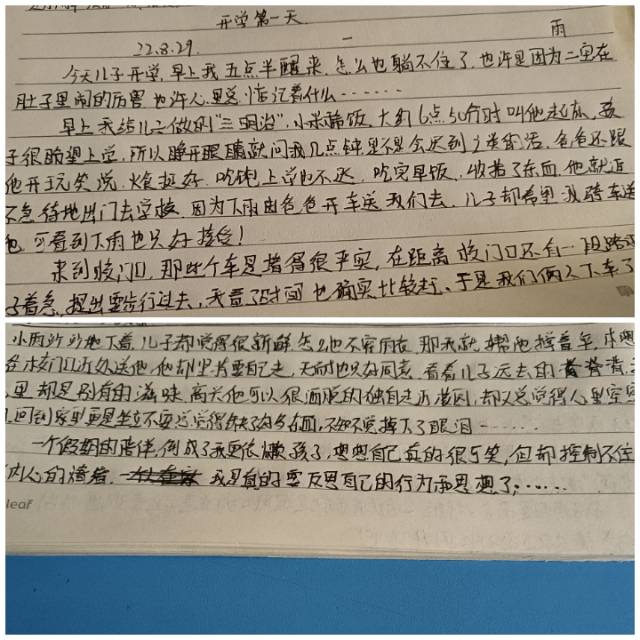 开学第一天
22.8.29. 一 雨
今天儿子开学,早上我五点半醒来,怎么也躺不住了,也许是因为二宝在
肚子里闹的厉害,也许心里总惦记着什么……
早上我给儿子做的"三明治",小米稀饭,大约6点50分时叫他起床,孩
子很盼望上学,所以睁开眼睛就问我几点钟是不是会迟到之类的话,爸爸还跟
他开玩笑说,火候挺好,吃饱上学也不迟,吃完早饭,收拾了东西,他就迫
不急待地出门去学校,因为下雨由爸爸开车送我们去,儿子却希望我骑车送
他,可看到下雨也只好接受!
来到校门口,那些个车是堵得很严实,在距离校门口还有一段路
子着急,提出要步行过去,我看了时间也确实比较赶,于是我们俩人下车了
小雨沥沥地下着,儿子却觉得很新鲜,怎么也不肯雨衣,那我就帮他撑着伞,本想
在校门口近处送他,他却坚持要自己走,无奈时也只好同意,看着儿子远去的背
里却是别有的滋味,高兴他可以很洒脱的独自走进校园,却又总觉得心里空
回到家里更是坐立不安总觉得缺了的东西,不知不觉掉下了眼泪……
一个假期的陪伴,倒成了我更依赖孩子,想想自己真的很可笑,但却控制不住
内心的情绪, 我是真的要反思自己的行为和思想了,……
leaf